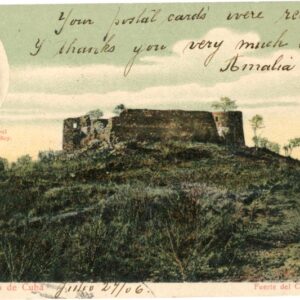 Your postal cards were re
I thanks you very much
Amalia
de Cuba
Junio 27/06.
Fuerte del C